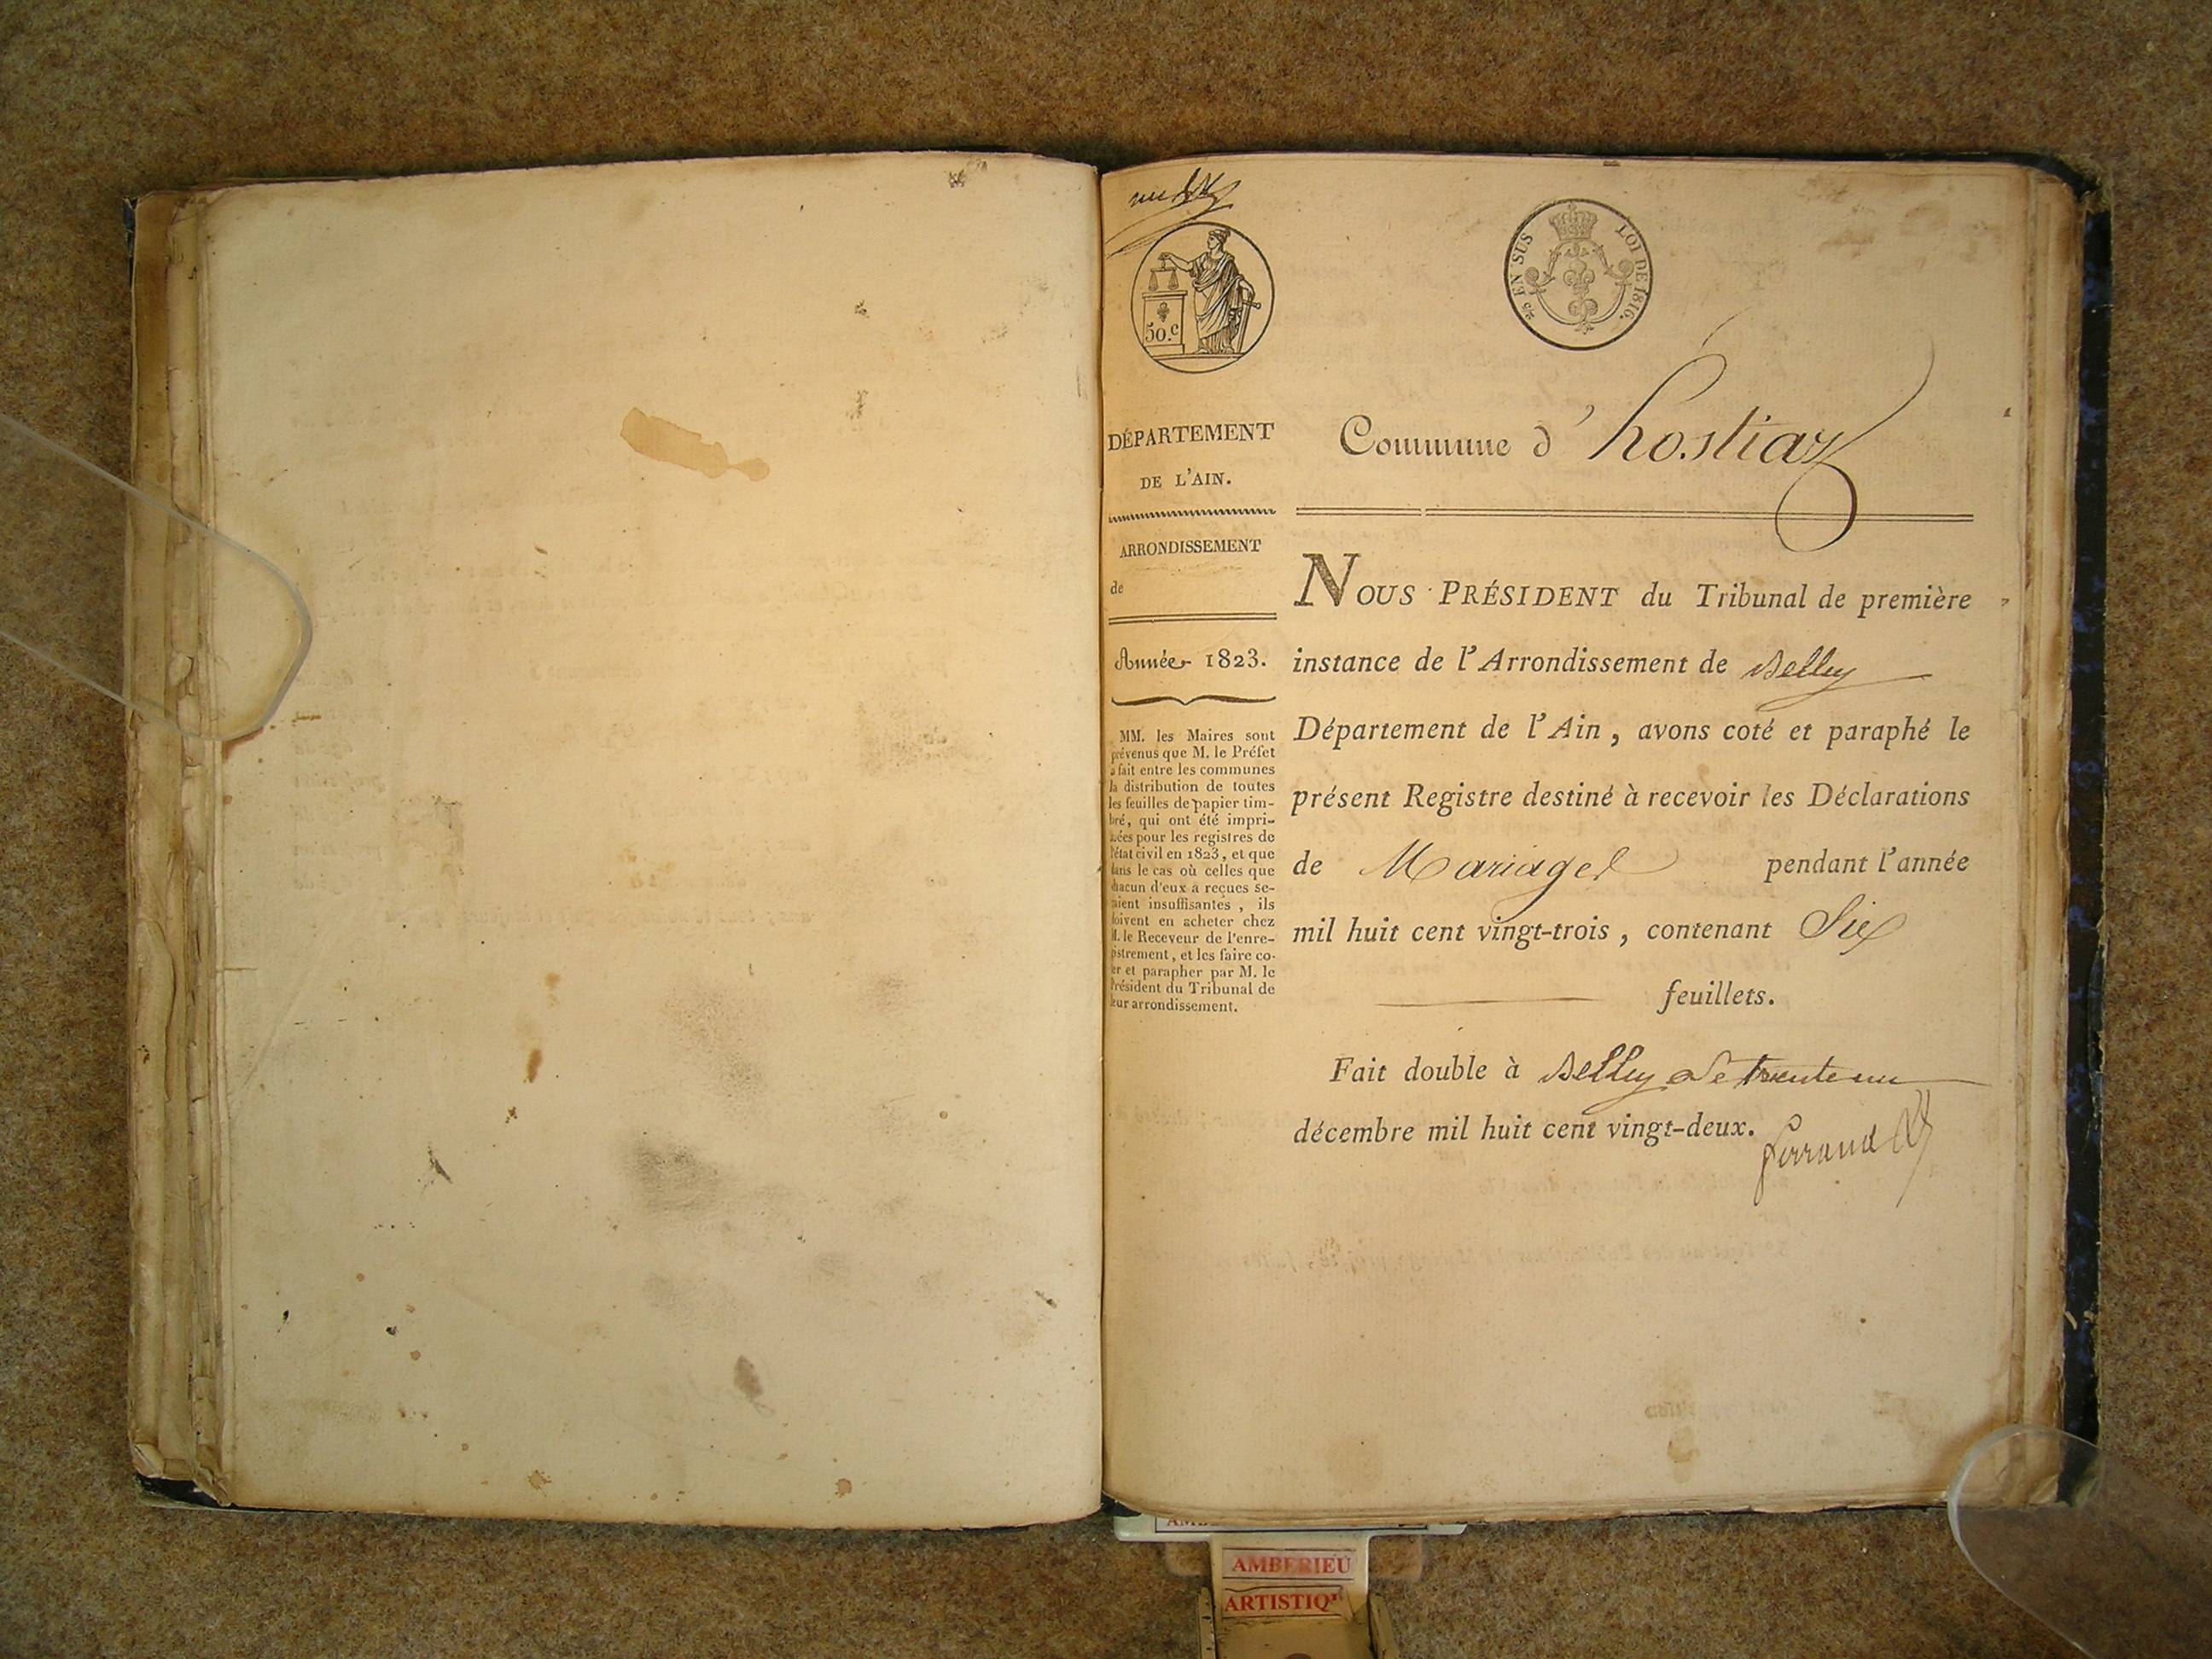 50.c
25 EN SUS
LOI DE 1816.
DÉPARTEMENT
DE L'AIN.
ARRONDISSEMENT
de
Année 1823.
MM. les Maires sont
prévenus que M. le Préfet
a fait entre les communes
la distribution de toutes
les feuilles de papier tim-
bré, qui ont été impri-
mées pour les registres de
l'état civil en 1823, et que
dans le cas où celles que
chacun d'eux a reçues se-
raient insuffisantes, ils
doivent en acheter chez
M. le Receveur de l'enre-
gistrement, et les faire co-
ter et parapher par M. le
Président du Tribunal de
leur arrondissement.
Commune d'hostiaz
NOUS PRÉSIDENT du Tribunal de première
instance de l'Arrondissement de Belley
Département de l'Ain, avons coté et paraphé le
présent Registre destiné à recevoir les Déclarations
de Mariages pendant l'année
mil huit cent vingt-trois, contenant Six
feuillets.
Fait double à Belley le trente un
décembre mil huit cent vingt-deux.
Ferrand
AMBERIEU
ARTISTIQ